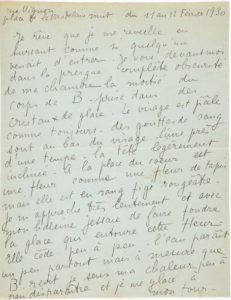 rue Vignon
place de la Madeleine nuit du 11 au 12 février 1930
Je rêve que je me réveille en
sursaut comme si quelqu'un
venait d'entrer. Je vois devant moi
dans la presque complète obscurité
de ma chambre la moitié du
corps de B. prise dans des
cristaux de glace. Le visage est pâle
comme toujours. des gouttes de sang
sont au bas du visage l'une près
d'une tempe. La tête légèrement
inclinée. A la place du coeur est
une fleur comme une fleur de tapis
mais elle est en sang figé rougeâtre.
je m'approche très lentement et avec
mon haleine j'essaie de faire fondre
la glace qui entoure cette fleur.
Elle cède peu à peu. l'eau paraît
un peu partout mais à mesure que
B. revit je sens ma chaleur peu à
peu disparaître et je me glace à
mon tour.